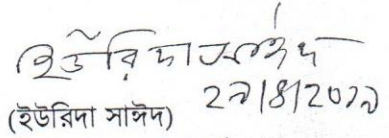 ইউরিদা সাঈদ
২৯/৪/২০১৯
(ইউরিদা সাঈদ)